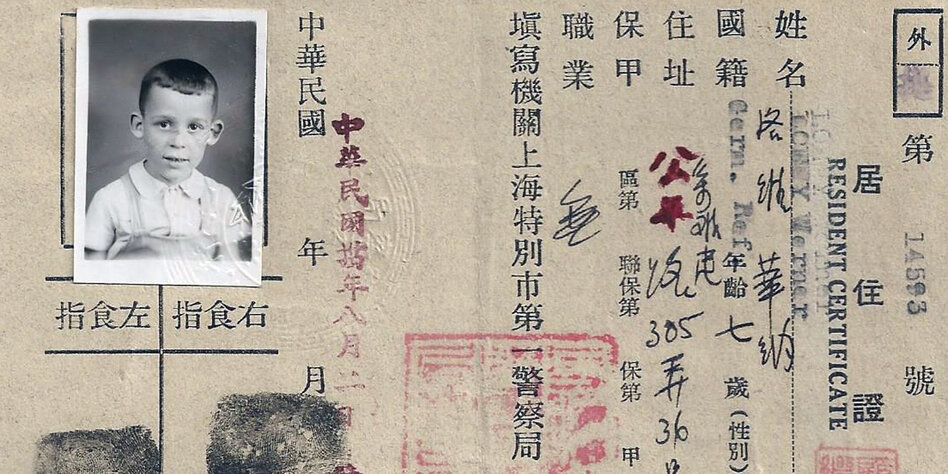 外
第 14593 號
居住證
RESIDENT CERTIFICATE
LOWY Werner
姓名 洛維 華納
國籍 Germ. Ref. 年齡 七 歲(性別)
住址 公平路 305 弄 36
保甲 區第 聯保第 保第 甲
職業 無
填寫機關上海特別市第一警察局
中華民國 年 月
中華民國 年八月二日
右食指
左食指